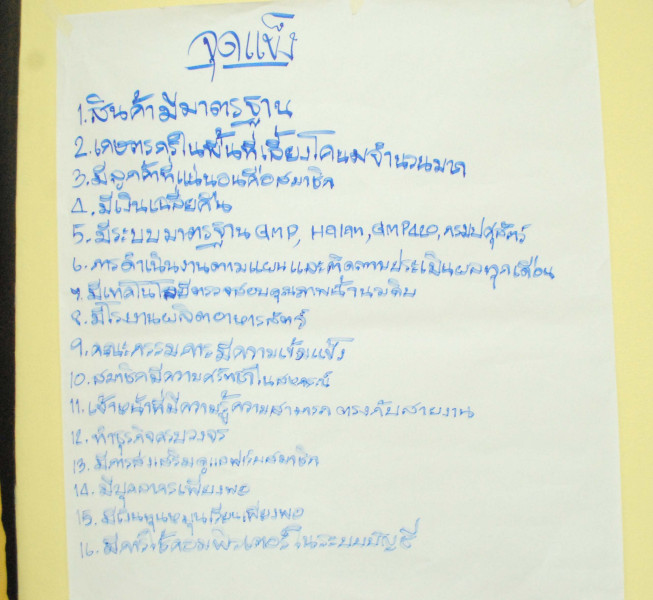 จุดแข็ง
1. สินค้ามีมาตรฐาน
2. เกษตรกรในพื้นที่เลี้ยงโคนมจำนวนมาก
3. มีลูกค้าที่แน่นอนคือสมาชิก
4. มีเงินเฉลี่ยคืน
5. มีระบบมาตรฐาน GMP, HALAL, GMP420, กรมปศุสัตว์
6. การดำเนินงานตามแผนและติดตามประเมินผลทุกเดือน
7. มีเทคโนโลยีตรวจสอบคุณภาพน้ำนมดิบ
8. มีโรงงานผลิตอาหารสัตว์
9. คณะกรรมการมีความเข้มแข็ง
10. สมาชิกมีความศรัทธาในสหกรณ์
11. เจ้าหน้าที่มีความรู้ความสามารถ ตรงกับสายงาน
12. ทำธุรกิจครบวงจร
13. มีการส่งเสริมดูแลฟาร์มสมาชิก
14. มีบุคลากรเพียงพอ
15. มีเงินทุนหมุนเวียนเพียงพอ
16. มีการใช้คอมพิวเตอร์ในระบบบัญชี